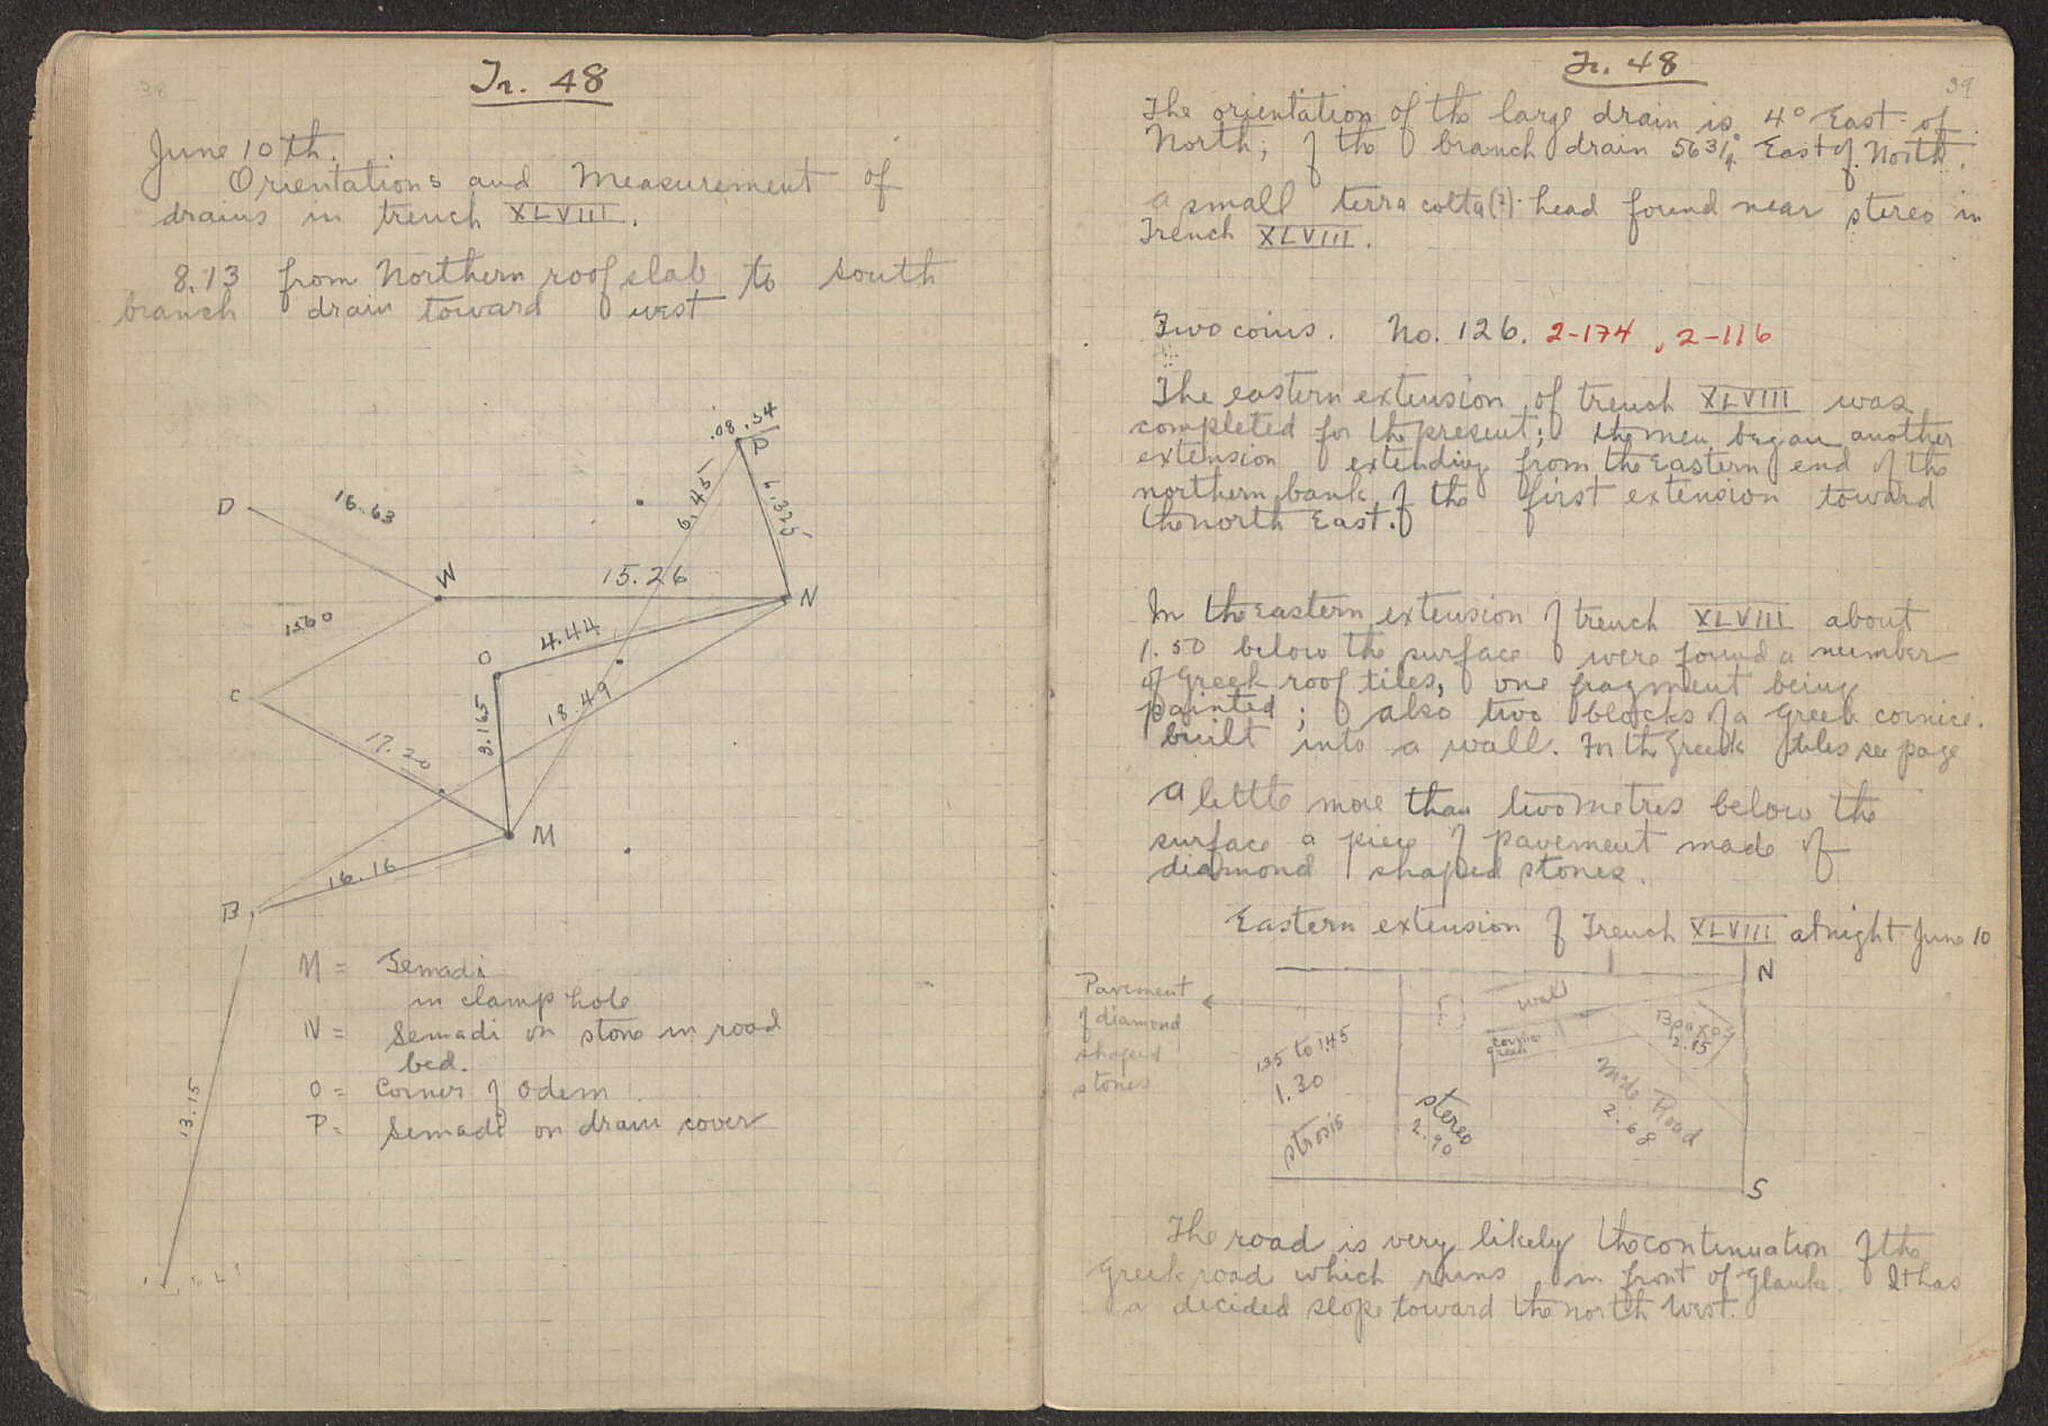 38
Tr. 48
June 10th.
Orientations and Measurement of
drains in trench XLVIII.
8.13 from Northern roof slab to south
branch drain toward west
.08 .34
P
D
16.63
6.45
W
15.26
N
1560
4.44
O
C
18.49
3.165
17.20
M
16.16
B
13.15
M = Semadi
in clamp hole
N = Semadi on stone in road
bed.
O = Corner of Odem
P = Semadi on drain cover
Tr. 48
39
The orientation of the large drain is 4° East of
North; of the branch drain 563/4° East of North.
A small terra cotta (?) head found near stereo in
Trench XLVIII.
Two coins. No. 126. 2-174, 2-116
The eastern extension of trench XLVIII was
completed for the present; the men began another
extension extending from the Eastern end of the
northern bank of the first extension toward
the north East.
In the Eastern extension of trench XLVIII about
1.50 below the surface were found a number
of Greek roof tiles, one fragment being
painted; also two blocks of a Greek cornice.
built into a wall. For the Greek tiles see page
A little more than two metres below the
surface a piece of pavement made of
diamond shaped stones.
Eastern extension of Trench XLVIII at night June 10
N
Pavement
of diamond
shaped
stones
wall
cornice
greek
Βράχος
2.15
1.35 to 1.45
1.30
strosis
stereo
2.90
Made Road
2.68
S
The road is very likely the continuation of the
Greek road which runs in front of Glauke. It has
a decided slope toward the north West.